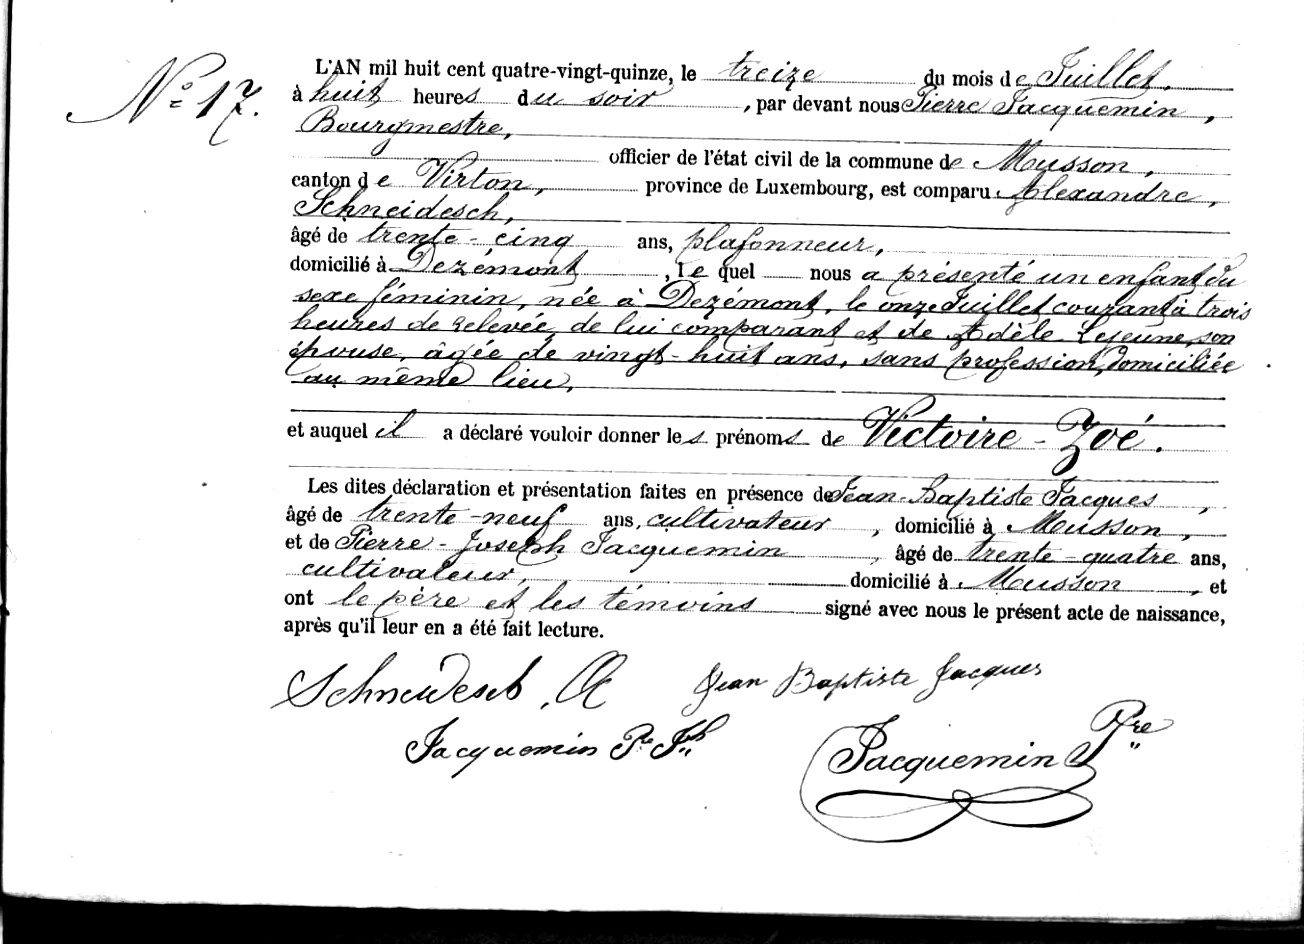 N° 17.
L'AN mil huit cent quatre-vingt-quinze, le treize du mois de Juillet,
à huit heures du soir, par devant nous Pierre Jacquemin,
Bourgmestre,
officier de l'état civil de la commune de Musson,
canton de Virton, province de Luxembourg, est comparu Alexandre,
Schneidesch,
âgé de trente-cinq ans, plafonneur,
domicilié à Dezémont, le quel nous a présenté un enfant du
sexe féminin, née à Dezémont, le onze Juillet courant à trois
heures de relevée, de lui comparant et de Adèle Lejeune, son
épouse, âgée de vingt-huit ans, sans profession, domiciliée
au même lieu,
et auquel il a déclaré vouloir donner les prénoms de Victoire-Zoé.
Les dites déclaration et présentation faites en présence de Jean-Baptiste Jacques,
âgé de trente-neuf ans, cultivateur, domicilié à Musson,
et de Pierre-Joseph Jacquemin, âgé de trente-quatre ans,
cultivateur, domicilié à Musson, et
ont le père et les témoins signé avec nous le présent acte de naissance,
après qu'il leur en a été fait lecture.
Schneidesch, Jean Baptiste Jacques
Jacquemin Pre Jph
Jacquemin Pre